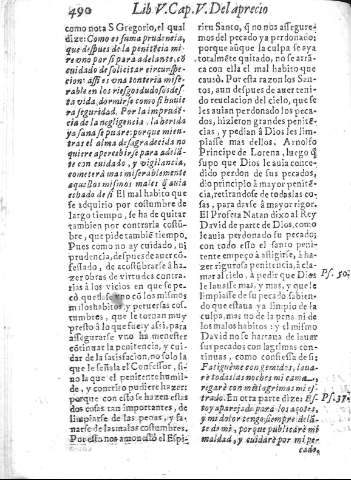 490 Lib V. Cap. V. Del aprecio
como nota S Gregorio, el qual
dize: Como es suma prudencia,
que despues de la penitēcia mi-
re vno por si para adelante, cō
cuidado de solicitar circunspe-
cion: assi es vna tonteria mise-
rable en los riesgos dudosos de
sta vida, dormirse como si huuie
ra seguridad. Por la impruden-
cia de la negligencia, la herida
ya sana se puare: porque mien-
tras el alma desagradecida no
quiere apercebirse para adelā-
te con cuidado, y vigilancia,
cometerà mas miserablemente
aquellos mismos males q̄ auia
echado de si. El mal habito que
se adquirio por costumbre de
largo tiempo, se ha de quitar
tambien por contraria costū-
bre, que pide tambiē tiempo.
Pues como no ay cuidado, ni
prudencia, despues de auer cō-
fessado, de acostūbrarse à ha-
zer obras de virtudes contra-
rias à los vicios en que se pe-
cò que
malos habitos, y peruersas cos-
tumbres, que le tornan muy
presto à lo que fue: y assi, para
assegurarse vno ha menester
continuar la penitencia, y cui-
dar de la satisfacion, no solo la
que le señala el Confessor, si-
no la que el penitente humil-
de, y contrito pudiere hazer:
porque con esto se hazen estas
dos cosas tan importantes, de
limpiarse de las penas, y sa-
narse de las malas costumbres.
Por esso nos amonestò el Espi-
ritu Santo, q̄ no nos assegure-
mos del pecado ya perdonado:
porque aũque la culpa se aya
totalmēte quitado, no se arrā-
ca con ella el mal habito que
causò. Por esta razon los San-
tos, aun despues de auer teni-
do reuelacion del cielo, que se
les auian perdonado los peca-
dos, hizieron grandes peniten-
cias, y pedian à Dios les limpi-
asse mas dellos. Arnolfo
Principe de Lorena, luego q̄
supo que Dios le auia conce-
dido perdon de sus pecados,
dio principio à mayor penitē-
cia, retirandose de todas las co-
sas, para darse à mayor rigor.
El Profeta Natan dixo al Rey
David de parte de Dios, como
le auia perdonado su pecado;
con todo esso el santo peni-
tente empeçò à afligirse, à ha-
zer rigurosa penitencia, à cla-
mar al cielo, à pedir que Dios Ps. 50.
le lauasse mas, y mas, y que le
limpiasse de su pecado sabien-
do que estaua ya limpio de la
culpa, mas no de la pena ni de
los malos habitos: y el mismo
David no se hartaua de llorar
sus pecados con lagrimas con-
tinuas, como confiessa de si:
Fatiguème con gemidos, laua-
rè todas las noches mi cama,
regarè con mis lagrimas mi es-
trado. En otra parte dize: Ps. 37.
soy aparejado para los açotes,
y mi dolor tengo siempre delā-
te de mi, porque publicarè mi
maldad, y cuidarè por mi pe-
cado,